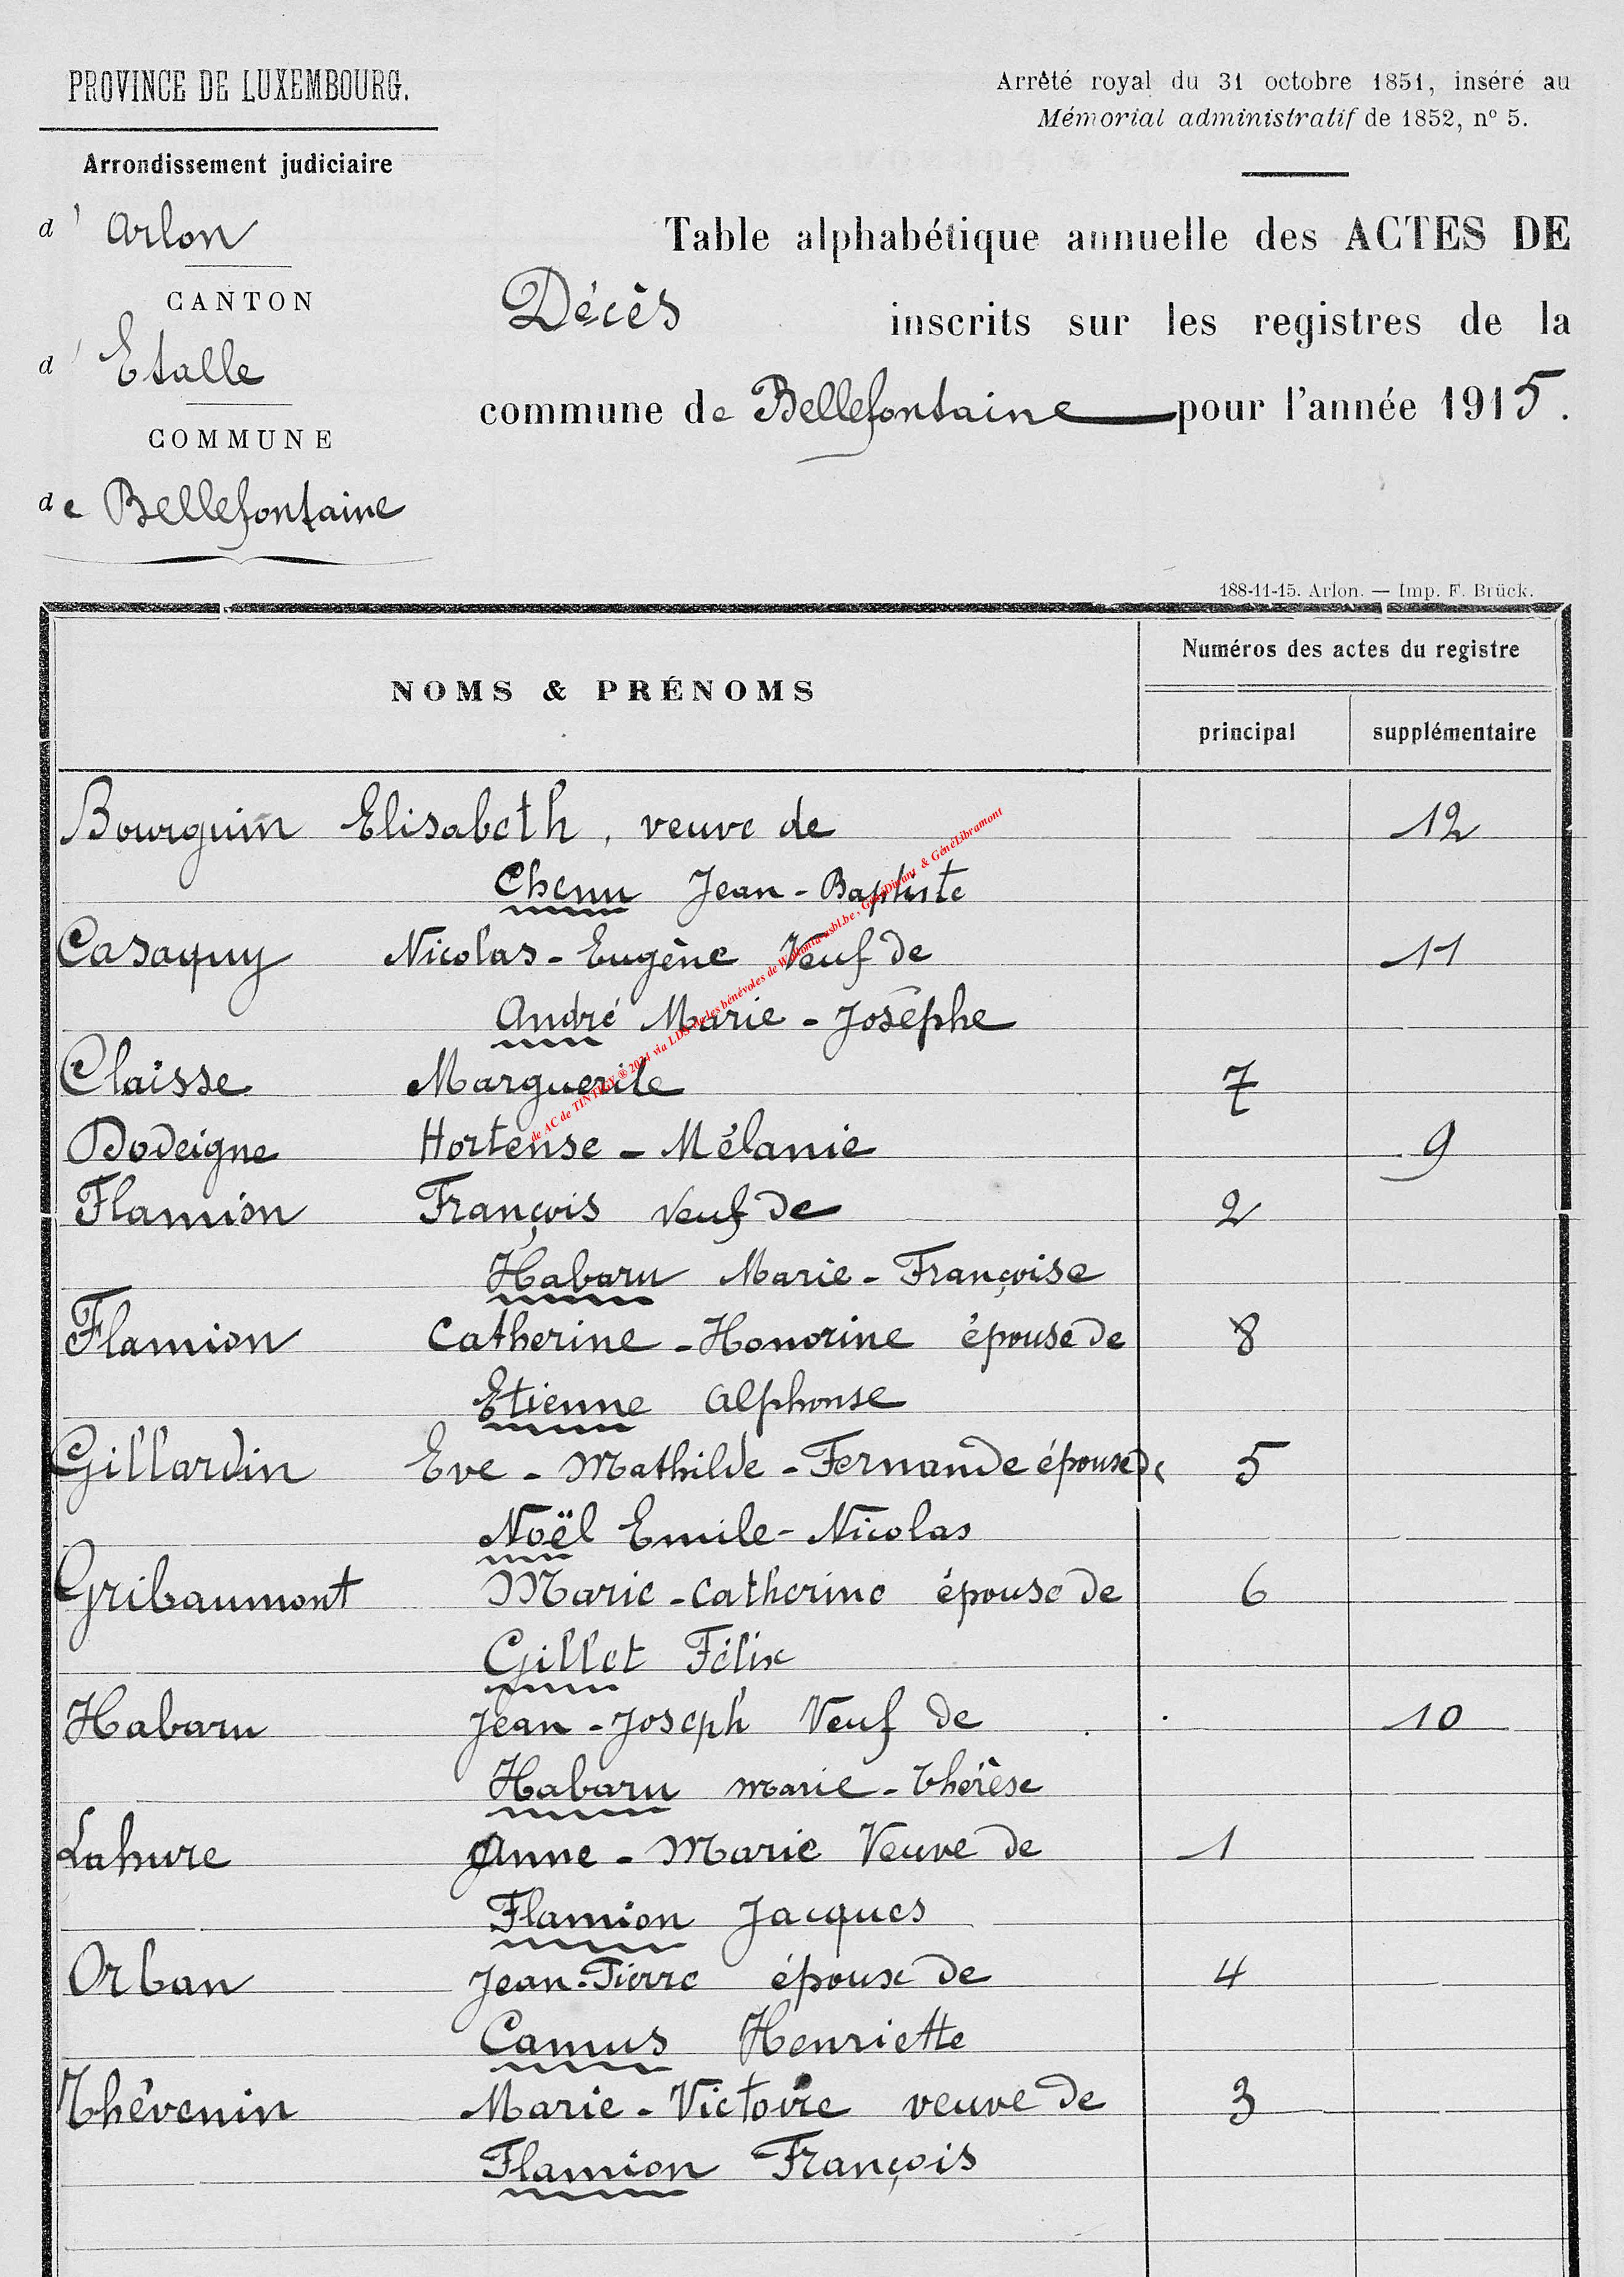 PROVINCE DE LUXEMBOURG.
Arrondissement judiciaire
d' Arlon
CANTON
d' Etalle
COMMUNE
de Bellefontaine
Arrêté royal du 31 octobre 1851, inséré au
Mémorial administratif de 1852, n° 5.
Table alphabétique annuelle des ACTES DE
Décès inscrits sur les registres de la
commune de Bellefontaine pour l'année 1915.
188-11-15. Arlon. — Imp. F. Brück.
NOMS & PRÉNOMS
Numéros des actes du registre
principal supplémentaire
Bourguin Elisabeth, veuve de 12
Chenu Jean-Baptiste
Casaquy Nicolas-Eugène Veuf de 11
André Marie-Josèphe
Claisse Marguerite 7
Dodeigne Hortense-Mélanie 9
Flamion François veuf de 2
Habaru Marie-Françoise
Flamion Catherine-Honorine épouse de 8
Etienne Alphonse
Gillardin Eve-Mathilde-Fernande épouse de 5
Noël Emile-Nicolas
Gribaumont Marie-Catherine épouse de 6
Gillet Félix
Habaru Jean-Joseph Veuf de 10
Habaru Marie-Thérèse
Lahure Anne-Marie Veuve de 1
Flamion Jacques
Orban Jean-Pierre époux de 4
Camus Henriette
Thévenin Marie-Victoire veuve de 3
Flamion François
de AC de TINTIGNY ® 2024 via LDS par les bénévoles de Wallonia-asbl.be, GénéDinant & GénéLibramont